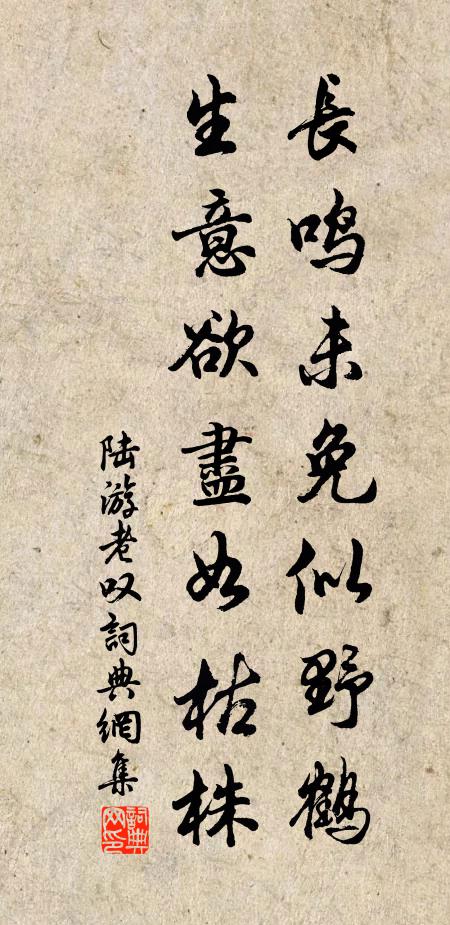 長鳴未免似野鶴
生意欲盡如枯株
陆游老叹詞典網集
詞典网印